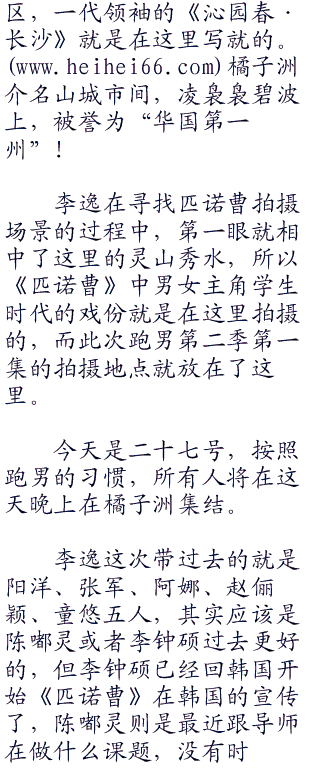 区，一代领袖的《沁园春·
长沙》就是在这里写就的。
(www.heihei66.com)橘子洲
介名山城市间，凌袅袅碧波
上，被誉为“华国第一
州”！
李逸在寻找匹诺曹拍摄
场景的过程中，第一眼就相
中了这里的灵山秀水，所以
《匹诺曹》中男女主角学生
时代的戏份就是在这里拍摄
的，而此次跑男第二季第一
集的拍摄地点就放在了这
里。
今天是二十七号，按照
跑男的习惯，所有人将在这
天晚上在橘子洲集结。
李逸这次带过去的就是
阳洋、张军、阿娜、赵俪
颖、童悠五人，其实应该是
陈嘟灵或者李钟硕过去更好
的，但李钟硕已经回韩国开
始《匹诺曹》在韩国的宣传
了，陈嘟灵则是最近跟导师
在做什么课题，没有时